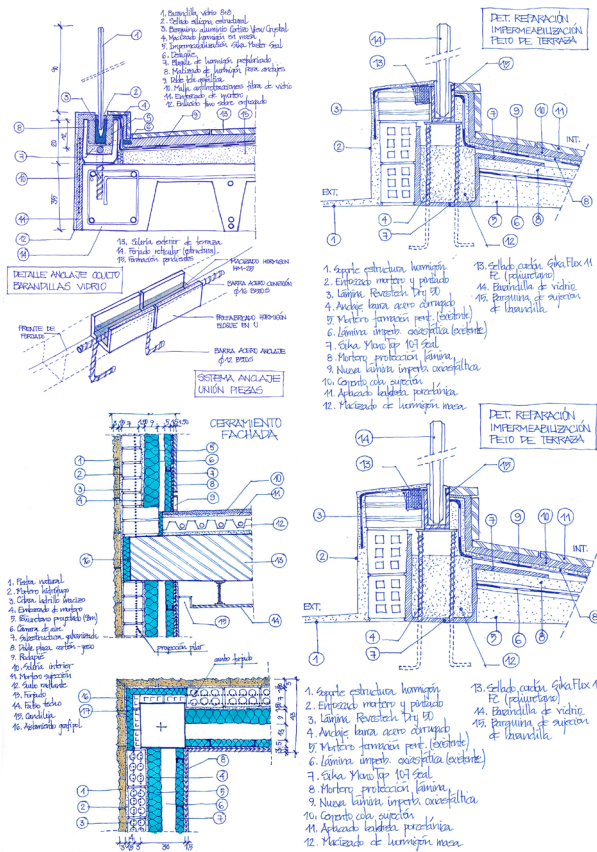 1. Barandilla vidrio 8+8
2. Sellado silicona estructural
3. Barquina aluminio Cortizo View Crystal
4. Macizado hormigón en masa
5. Impermeabilización Sika Master Seal
6. Desagüe
7. Bloque de hormigón prefabricado
8. Macizado de hormigón para anclajes
9. Doble tela asfáltica
10. Malla antirretracciones fibra de vidrio
11. Enfoscado de mortero
12. Enlucido fino sobre enfoscado
13. Solería exterior de terraza
14. Forjado reticular (estructura)
15. Formación pendientes
DETALLE ANCLAJE OCULTO
BARANDILLAS VIDRIO
MACIZADO HORMIGÓN
HM-25
BARRA ACERO CONEXIÓN
Ø16 B500S
PREFABRICADO HORMIGÓN
BLOQUE EN U
BARRA ACERO ANCLAJE
Ø12 B500S
FRENTE DE
FORJADO
SISTEMA ANCLAJE
UNIÓN PIEZAS
DET. REPARACIÓN
IMPERMEABILIZACIÓN
PETO DE TERRAZA
EXT.
INT.
1. Soporte estructura hormigón
2. Enfoscado mortero y pintado
3. Lámina Revestech Dry 50
4. Anclaje barra acero corrugado
5. Mortero formación pent. (existente)
6. Lámina imperb. oxiasfáltica (existente)
7. Sika MonoTop 107 Seal
8. Mortero protección lámina
9. Nueva lámina imperb. oxiasfáltica
10. Cemento cola sujeción
11. Aplacado baldosa porcelánica
12. Macizado de hormigón masa
13. Sellado cordón Sika Flex 11
FC (poliuretano)
14. Barandilla de vidrio
15. Barquina de sujeción
de barandilla
CERRAMIENTO
FACHADA
1. Piedra natural
2. Mortero hidrófugo
3. Citara ladrillo macizo
4. Embarrado de mortero
5. Poliuretano proyectado (8cm)
6. Cámara de aire
7. Subestructura galvanizada
8. Doble placa cartón-yeso
9. Rodapié
10. Solería interior
11. Mortero sujección
12. Suelo radiante
13. Forjado
14. Falso techo
15. Candileja
16. Aislamiento grafipol
proyección pilar
canto forjado
DET. REPARACIÓN
IMPERMEABILIZACIÓN
PETO DE TERRAZA
EXT.
INT.
1. Soporte estructura hormigón
2. Enfoscado mortero y pintado
3. Lámina Revestech Dry 50
4. Anclaje barra acero corrugado
5. Mortero formación pent. (existente)
6. Lámina imperb. oxiasfáltica (existente)
7. Sika MonoTop 107 Seal
8. Mortero protección lámina
9. Nueva lámina imperb. oxiasfáltica
10. Cemento cola sujeción
11. Aplacado baldosa porcelánica
12. Macizado de hormigón masa
13. Sellado cordón Sika Flex 11
FC (poliuretano)
14. Barandilla de vidrio
15. Barquina de sujeción
de barandilla